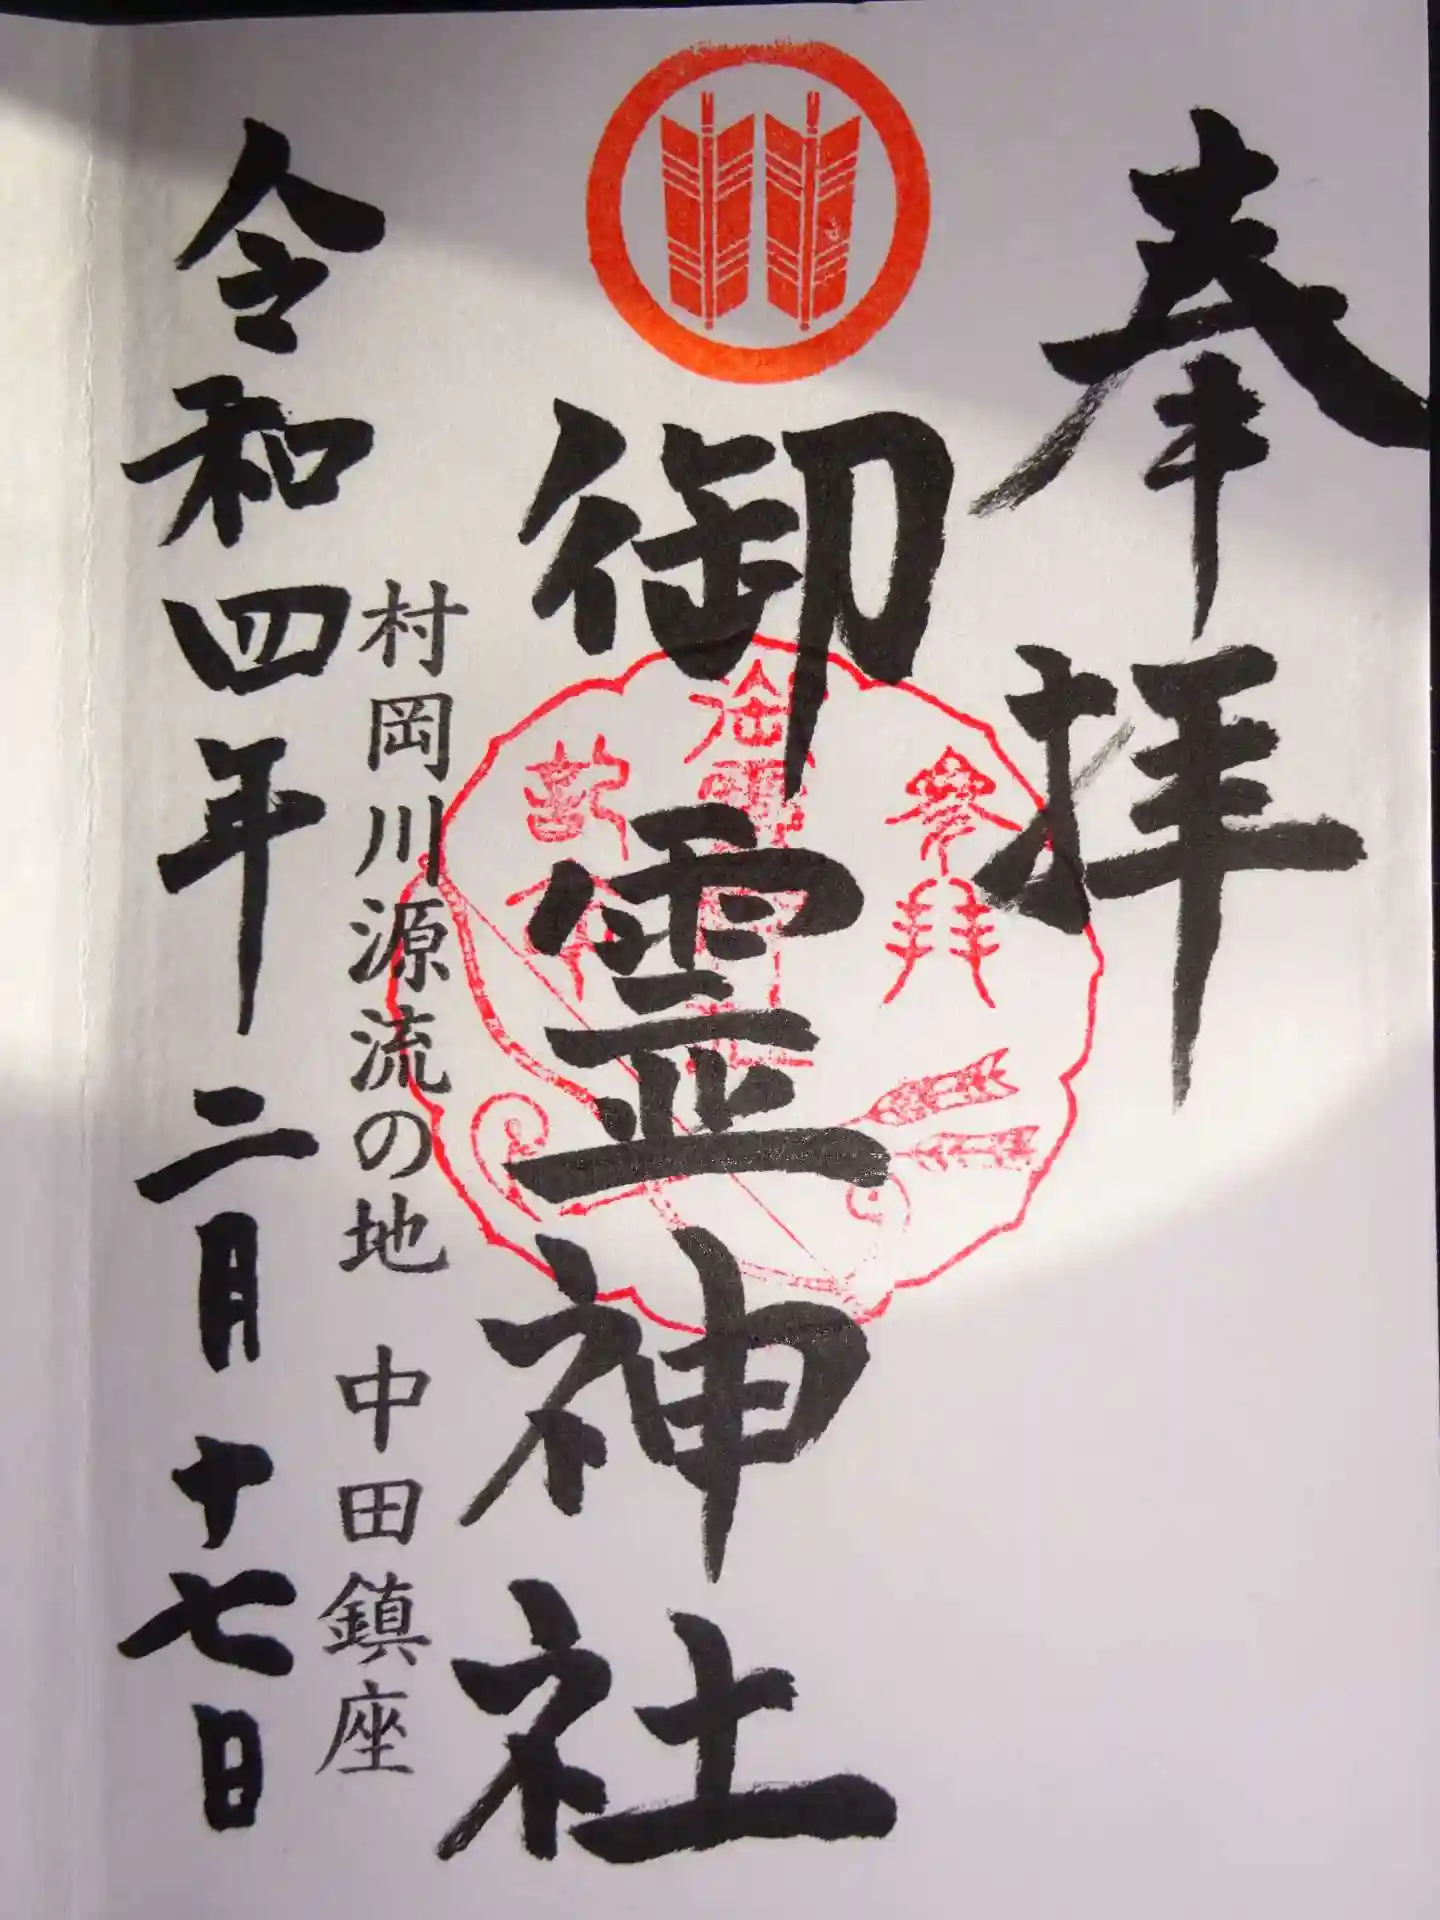 奉拝
御霊神社
村岡川源流の地 中田鎮座
令和四年二月十七日